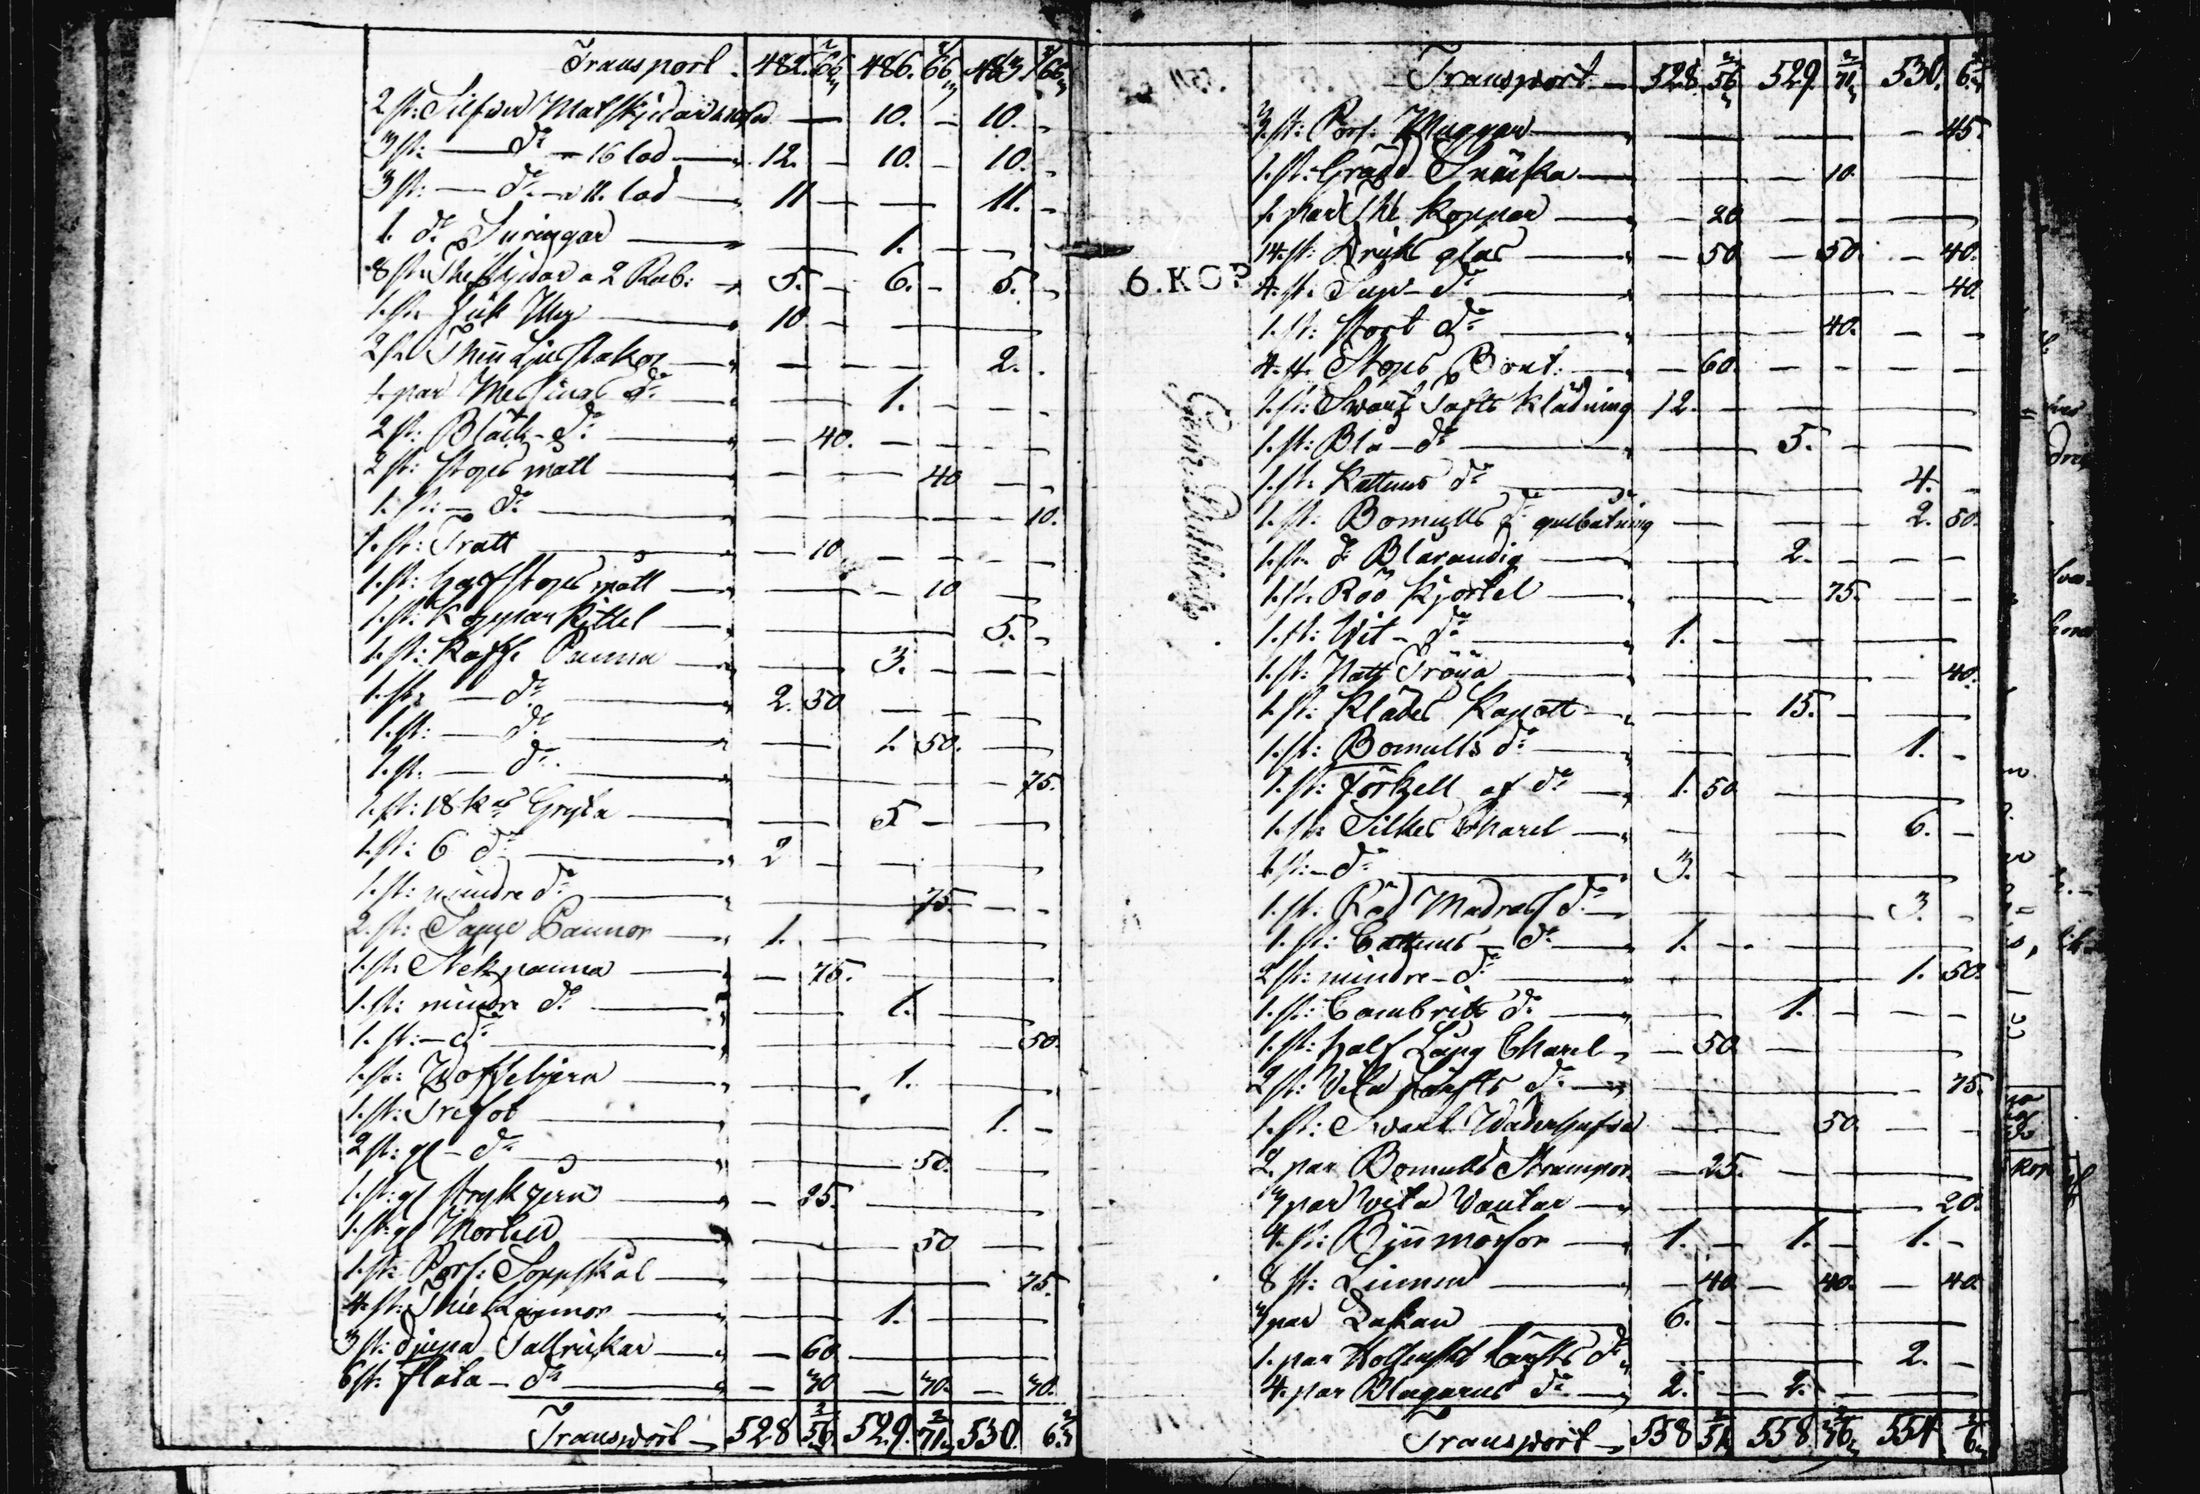 Transport 482. 66 486. 66 483. 66
2 st: Silfver Matskjedar
3 st: — do — 16 lod — 12. — 10. — 10. —
3 st: — do — 11. lod — 11 — — — 11. —
1. do — 1. —
8 st: Theskjedar a 2 Rub: 5. — 6. — 5. —
1. st: Fick Uhr 10 —
2 st: Thenn Ljusstakar 2. —
1. par Messings do 1. —
2 st: Bläck do 40.
2 st: Stops mått 40
1. st: — do 10.
1. st: Tratt 10
1. st: Half Stops mått 10
1. st: Koppar Kittel 5. —
1. st: Kaffe Panna 3. —
1. st: — do 2. 50
1. st: — do 1. 50.
1. st: — do 75.
1. st: 18 Gryta 5 —
1. st: 6 do 2 —
1. st: mindre do 75.
2. st: Pannor 1. —
1. st: Stekpanna 75.
1. st: mindre do 1. —
1. st: — do 50.
1. st: Woffeljern 1. —
1. st: Trefot 1. —
2 st: gl — do 50.
1. st: gl Strykjern 25.
1. st: gl Mortel 50
1. st: Porsl: Soppskål 75.
4. st: Thekannor 1. —
3 st: djupa Tallrickar 60
6 st: flata — do 30 — 30. — 30.
Transport 528 56 529. 71 530. 6
Transport 528. 56 529. 71 530. 6
3. st: Porsl: Muggar 45.
1. st: Grädd Snäcka 10.
1. par The Koppar 20
14. st: Dricks glas 50 — 50. — 40.
6. KOP
4. st: Sup — do 40.
1. st: Stort do 40.
4. st. Stops But: 60.
1. st: Swart Tafts Klädning 12. —
1. st: Blå — do 5. —
1. st. Kattuns do 4. —
1. st. Bomulls do gulbotning 2. 50.
1. st. do Blårandig 2. —
1. st. Röd Kjortel 75.
1. st: Wit — do 1. —
1. st: Natt Tröija 40.
1. st: Klädes Kapott 15. —
1. st: Bomulls do 1. —
1. st: förkell af do 1. 50
1. st: Silkes Charel 6. —
1. st: — do 3. —
1. st. Röd Madrass do 3. —
1. st: Cattuns — do 1. —
2 st: mindre — do 1. 50.
1. st: Cambriks do 1. —
1. st: half Lång Charel 50
2 st: Vita Lärfts do 75.
1. st: Swart 50.
2. par Bomulls Strumpor 25.
3 par wita Vantar 20.
4. st: Binnmössor 1. — 1. — 1. —
8 st: Linnen 40 — 40. — 40.
3 par Lakan 6. —
1. par Lärfts do 2. —
4. par Blagarns do 2. — 2. —
Transport 558 51 558 76 554 6